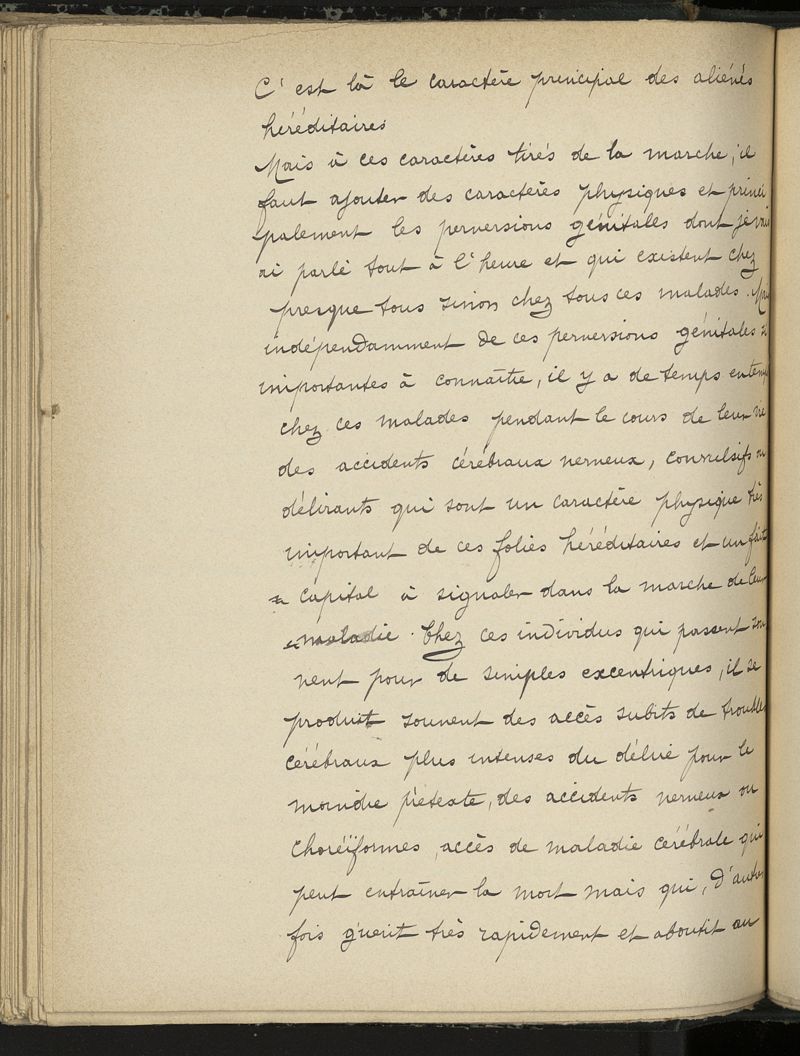 C'est là le caractère principal des aliénés
héréditaires
Mais à ces caractères tirés de la marche, il
faut ajouter des caractères physiques et princi
palement les perversions génitales dont je vous
ai parlé tout à l'heure et qui existent chez
presque tous sinon chez tous ces malades.
indépendamment de ces perversions génitales si
importantes à connaître, il y a de temps en temps
chez ces malades pendant le cours de leur vie
des accidents cérébraux nerveux, convulsifs ou
délirants qui sont un caractère physique très
important de ces folies héréditaires et un fait
capital à signaler dans la marche de leur
maladie. Chez ces individus qui passent sou
vent pour de simples excentriques, il se
produit souvent des accès subits de troubles
cérébraux plus intenses du délire pour le
moindre prétexte, des accidents nerveux ou
choréïformes, accès de maladie cérébrale qui
peut entraîner la mort mais qui, d'autre
fois guérit très rapidement et aboutit au